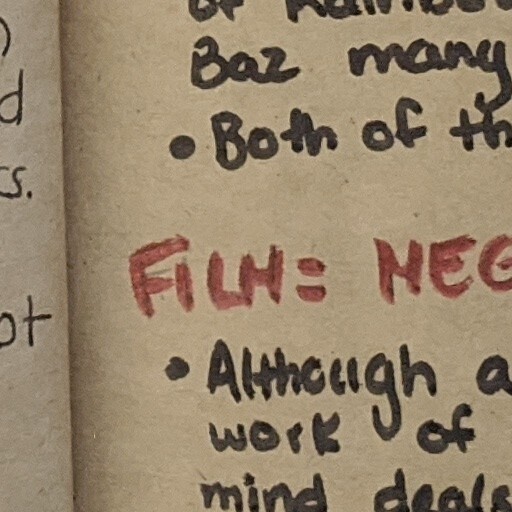 of
Baz many
• Both of th
FILM: NEG
• Although a
work of
mind deals